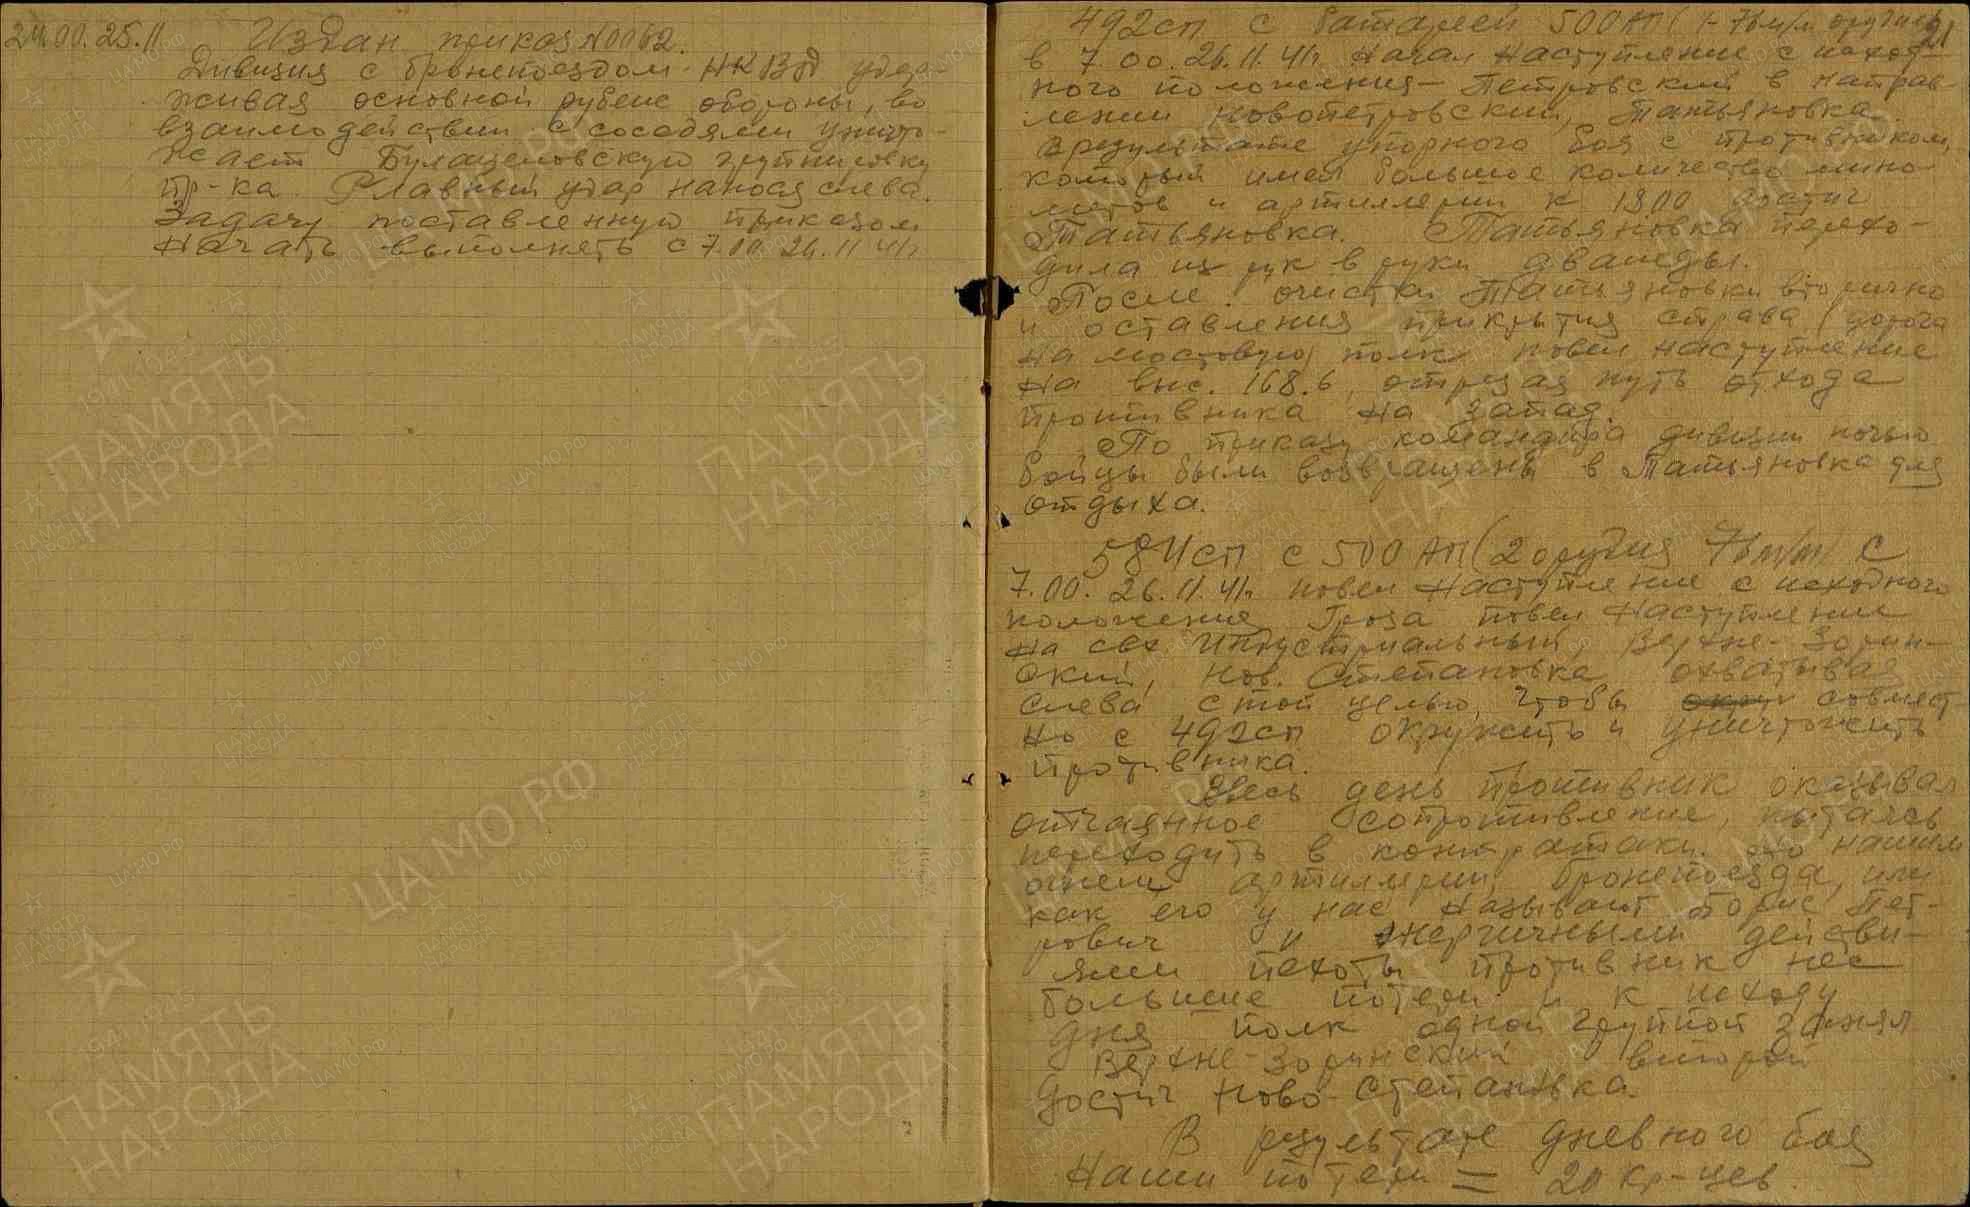 24.00. 25.11 Издан приказ №0062.
Дивизия с бронепоездом НКВД удер-
живая основной рубеж обороны, во
взаимодействии с соседями уничто-
жает группировку
пр-ка. Главный удар нанося слева.
Задачу поставленную приказом
начать выполнять с 7.00 26.11 41г.
492сп с батареей 500АП (
в 7.00. 26.11.41г. начал наступление с исход-
ного положения – Петровский в направ-
лении Новопетровский, Татьяновка.
В результате упорного боя с противником,
который имел большое количество мино-
метов и артиллерии к 1300 достиг
Татьяновка. Татьяновка перехо-
дила из рук в руки дважды.
После очистки Татьяновки вторично
и оставления прикрытия справа (дорога
на мостовую) полк повел наступление
на выс. 168.6, отрезая путь отхода
противника на запад.
По приказу командира дивизии ночью
бойцы были возвращены в Татьяновка для
отдыха.
584сп с 500 АП (2 орудия 76 м/м) с
7.00. 26.11.41г. повел наступление с исходного
положения Гроза повел наступление
на свх. Индустриальный Верхне-Зорин-
ский, Нов. Степановка охватывая
слева с той целью, чтобы совмест-
но с 492сп окружить и уничтожить
противника.
Весь день противник оказывал
отчаянное сопротивление, пытаясь
переходить в контратаки. но нашим
огнем артиллерии, бронепоезда, или
как его у нас называют Борис Пет-
рович и энергичными действи-
ями пехоты противник нес
большие потери и к исходу
дня полк одной группой занял
Верхне-Зоринский второй
достиг Ново-Степановка.
В результате дневного боя
Наши потери = 20 кр-цев.